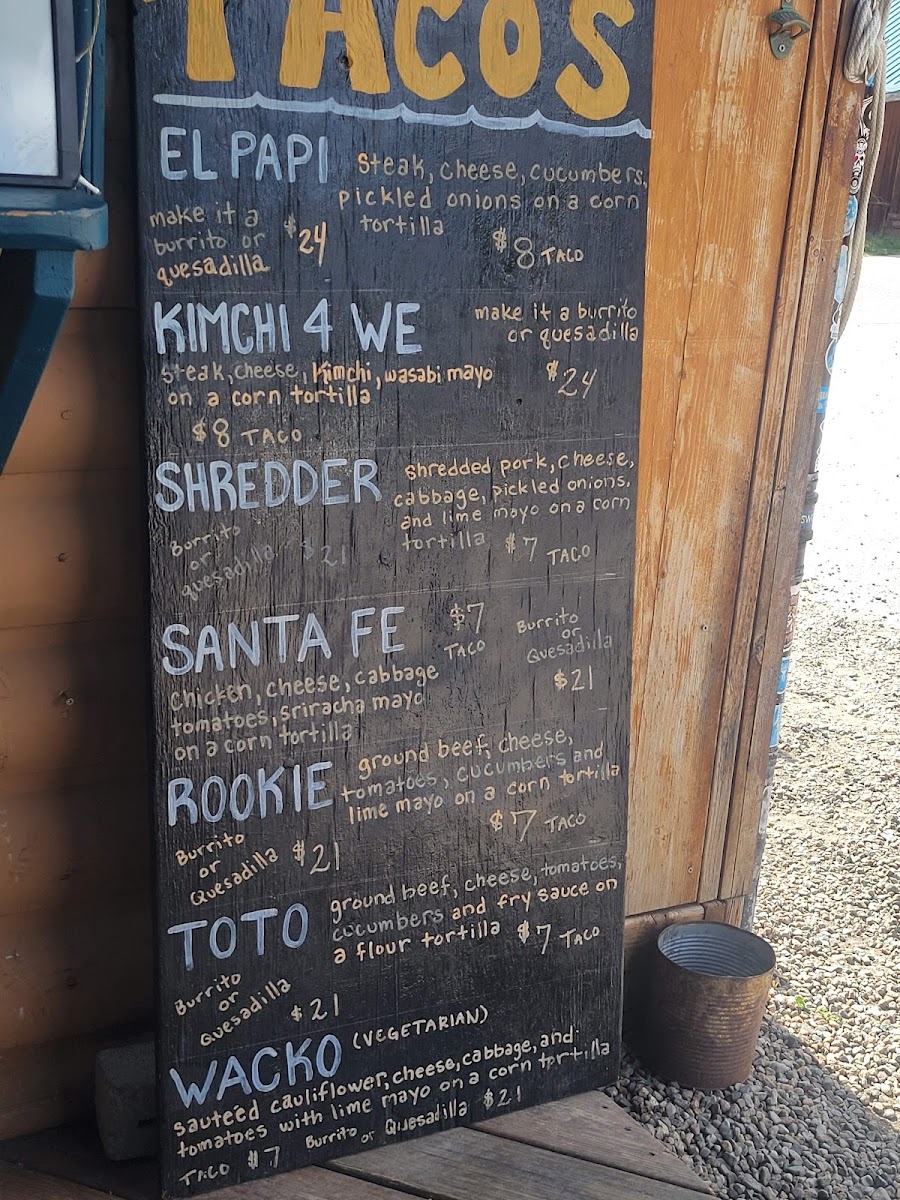 TACOS
EL PAPI
steak, cheese, cucumbers,
pickled onions on a corn
tortilla
make it a
burrito or
quesadilla
$24
$8 TACO
KIMCHI 4 WE
make it a burrito
or quesadilla
$24
steak, cheese, kimchi, wasabi mayo
on a corn tortilla
$8 TACO
SHREDDER
shredded pork, cheese,
cabbage, pickled onions,
and lime mayo on a corn
tortilla
$7 TACO
Burrito
or
quesadilla
$21
SANTA FE
$7
TACO
Burrito
or
Quesadilla
$21
chicken, cheese, cabbage
tomatoes, sriracha mayo
on a corn tortilla
ROOKIE
ground beef, cheese,
tomatoes, cucumbers and
lime mayo on a corn tortilla
$7 TACO
Burrito
or
Quesadilla
$21
TOTO
ground beef, cheese, tomatoes,
cucumbers and fry sauce on
a flour tortilla
$7 TACO
Burrito
or
Quesadilla
$21
WACKO (VEGETARIAN)
sauteéd cauliflower, cheese, cabbage, and
tomatoes with lime mayo on a corn tortilla
TACO $7
Burrito or Quesadilla $21